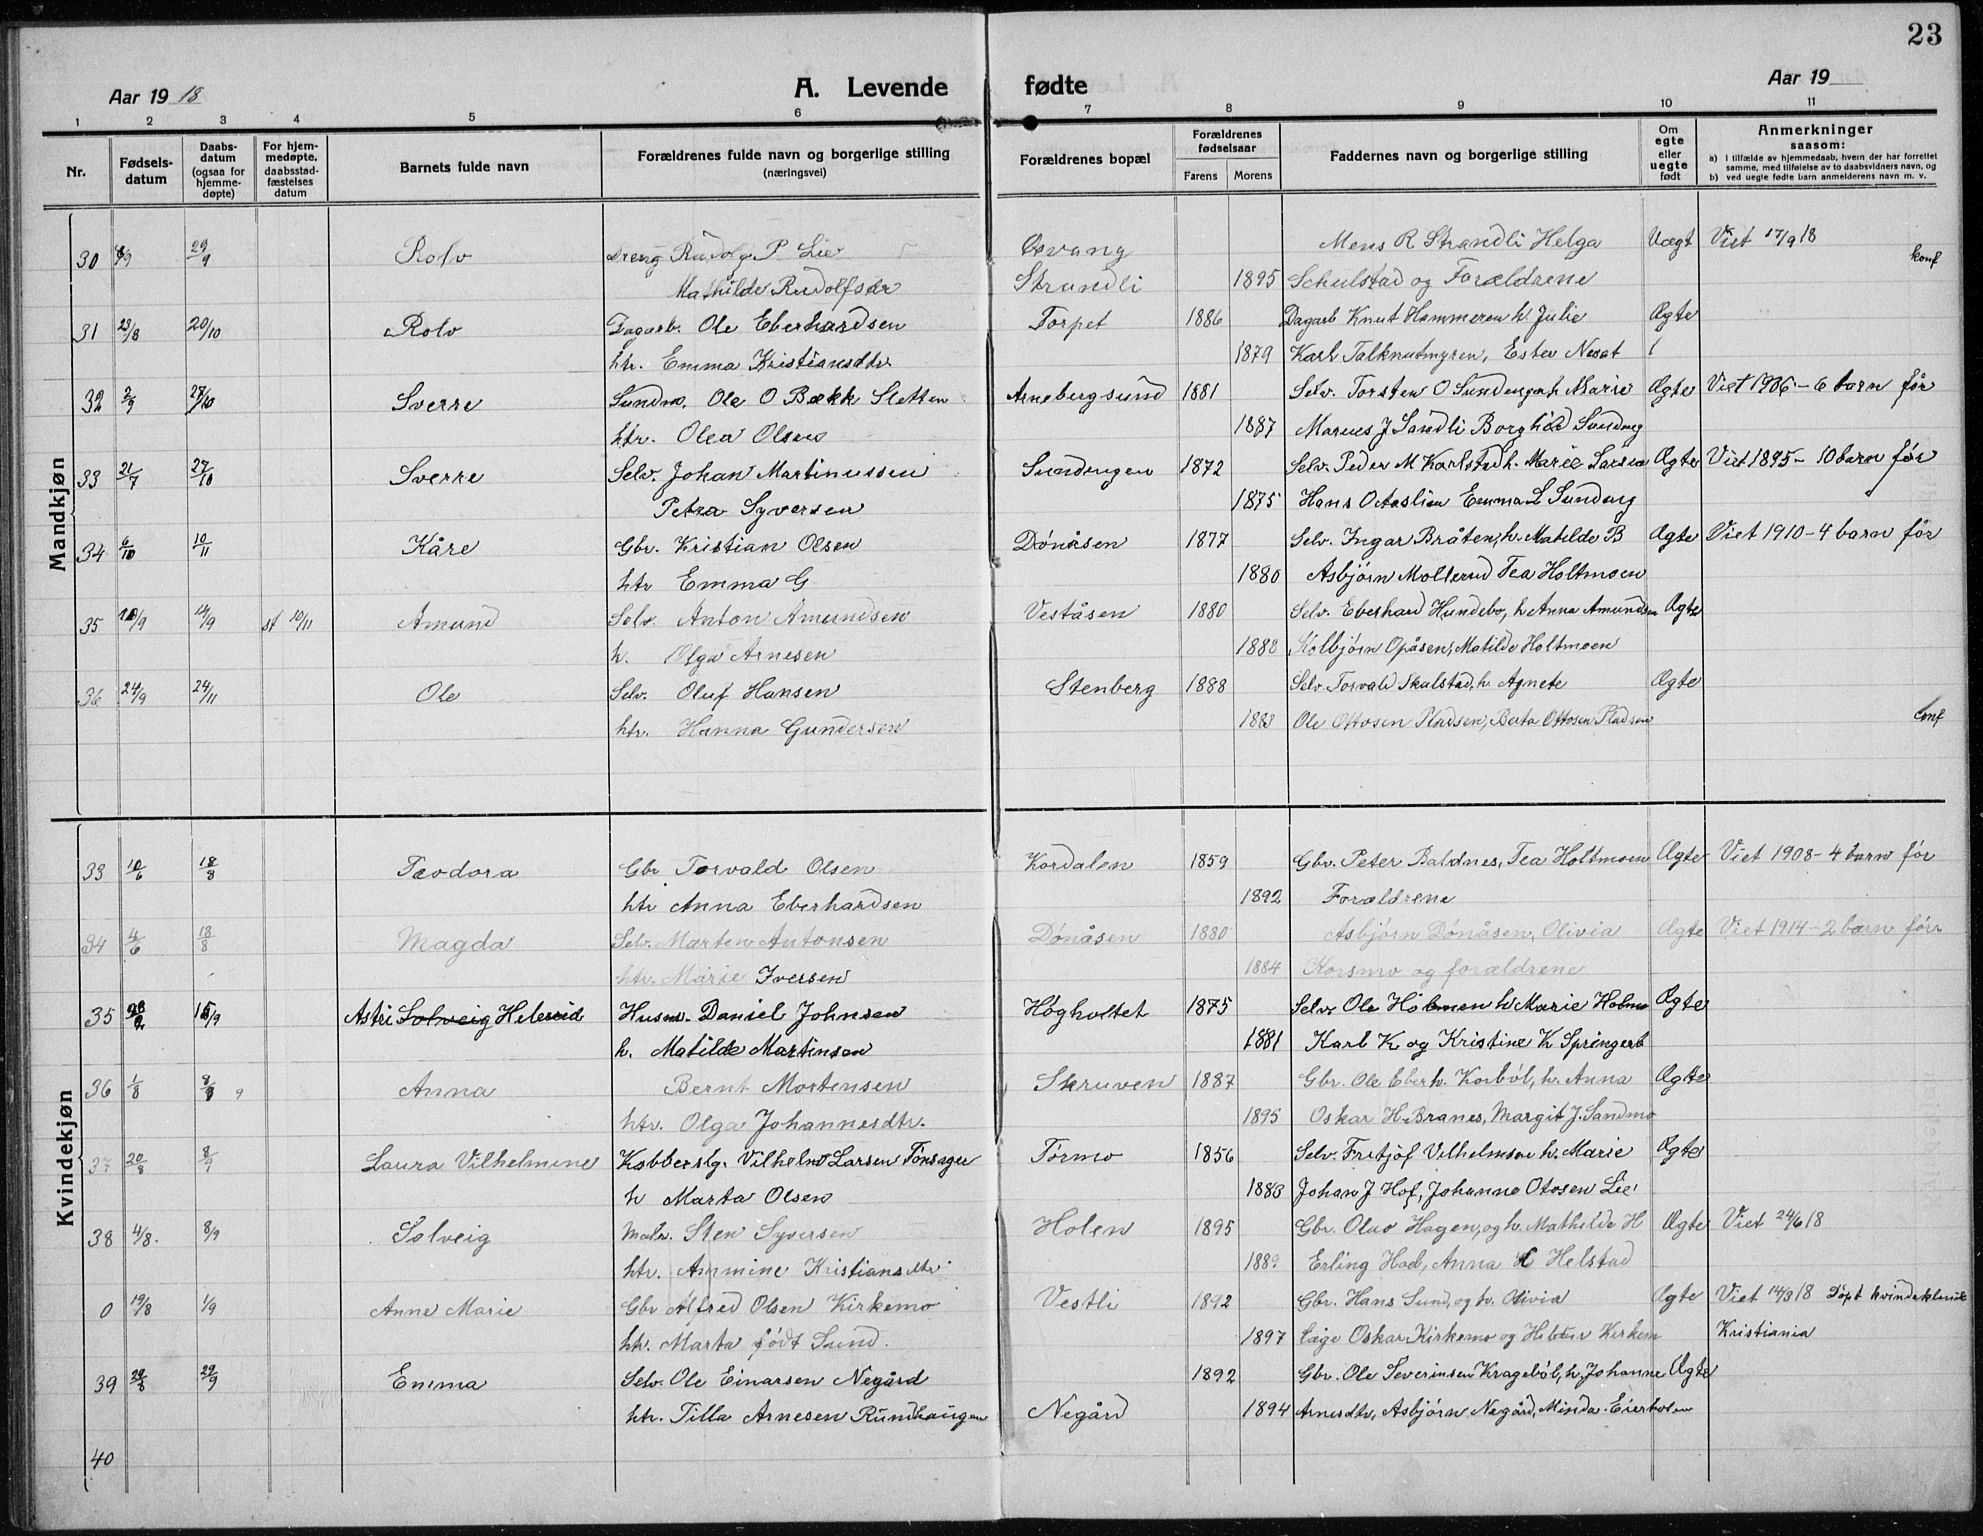 23
Aar 19 18
A. Levende fødte
Aar 19
1 2 3 4 5 6 7 8 9 10 11
Nr.
Fødsels-
datum
Daabs-
datum
(ogsaa for
hjemme-
døpte)
For hjem-
medøpte,
daabsstad-
fæstelses
datum
Barnets fulde navn
Forældrenes fulde navn og borgerlige stilling
(næringsvei)
Forældrenes bopæl
Forældrenes
fødselsaar
Farens Morens
Faddernes navn og borgerlige stilling
Om
egte
eller
uegte
født
Anmerkninger
saasom:
a) i tilfælde av hjemmedaab, hvem der har forrettet
samme, med tilføielse av to daabsvidners navn, og
b) ved uegte fødte barn anmelderens navn m. v.
Mandkjøn
30 29/9 Rolv Dreng Rudolf P Lie Osvang Mens R Strandli Helga Uægt Viet 17/9 18 konf
Mathilde Rudolfsdr Strandli 1895 Schulstad og Forældrene
31 23/8 20/10 Rolv Dagarb. Ole Eberhardsen Torpet 1886 Dagarb Knut Hammeren h. Julie Ægte
htr. Emma Kristiansdtr. 1879 Karl Talknutmyren, Ester Nesat
32 2/9 27/10 Sverre Ole O Bækk Sletten Arnebergsund 1881 Selv. Torsten O Sundengen h Marie Ægte Viet 1906 - 6 barn før
htr. Olea Olsen 1887 Marius J Sandli Borghild Sundeng
33 21/7 27/10 Sverre Selv. Johan Martinussen Sundengen 1872 Selv. Peder M Karlstad h. Marie Larsen Ægte Viet 1895 - 10 barn før
Petra Syversen 1875 Hans Oteslien Emma L Sundeng
34 6/10 10/11 Kåre Gbr. Kristian Olsen Dønåsen 1877 Selv. Ingar Bråten, h. Matilde B Ægte Viet 1910 - 4 barn før
htr Emma G 1880 Asbjørn Mollerud Tea Holtmoen
35 10/9 14/9 st 10/11 Amund Selv. Anton Amundsen Veståsen 1880 Selv. Eberhard Hundebo, h Anna Amundsen Ægte
h. Olga Arnesen 1888 Kolbjørn Opåsen, Matilde Holtmoen
36 24/9 24/11 Ole Selv. Oluf Hansen Stenberg 1888 Selv. Torvald Skulstad, h. Agnete Ægte
htr. Hanna Gundersen 1883 Ole Ottosen Pladsen, Berta Ottosen Pladsen konf
Kvindekjøn
33 10/6 18/8 Teodora Gbr Torvald Olsen Kordalen 1859 Gbr. Peter Baldnes, Tea Holtmoen Ægte Viet 1908 - 4 barn før
htr Anna Eberhardsen 1892 Forældrene
34 4/6 18/8 Magda Selv. Marten Antonsen Dønåsen 1880 Asbjørn Dønåsen, Olivia Ægte Viet 1914 - 2 barn før
htr. Marie Iversen 1884 Korsmo og forældrene
35 15/9 Astri Solveig Helerud Husm. Daniel Johnsen Høgholtet 1875 Selv. Ole Holmen h Marie Holmen Ægte
h. Matilde Martinsen 1881 Karl K og Kristine K Springerb
36 1/8 8/9 Anna Bernt Mortensen Skruven 1887 Gbr. Ole Eberh. Korbøl, h. Anna Ægte
htr. Olga Johannesdtr. 1895 Oskar H. Branes, Margit J. Sandmo
37 20/8 8/9 Laura Vilhelmine Kobberslg. Vilhelm Larsen Tønsager Tørmo 1856 Selv. Fritjof Vilhelmsen h. Marie Ægte
h Marta Olsen 1883 Johan J Hof, Johanne Otosen Lie
38 4/8. 8/9 Solveig Maler. Sten Syversen Holen 1895 Gbr. Olav Hagen, og h. Mathilde H Ægte Viet 24/6 18
htr. Ammine Kristiansdtr 1889 Erling Hod, Anna Helstad
0 19/8 1/9 Anne Marie Gbr Alfred Olsen Kirkemo Vestli 1892 Gbr. Hans Sund, og h. Olivia Ægte Viet 14/3 18 Døpt kvindeklinik
htr. Marta født Sund. 1897 Oskar Kirkemo og Hildur Kirkem Kristiania
39 29/8 29/9 Emma Selv. Ole Einarsen Negård 1892 Gbr. Ole Severinsen Kragebøl, h. Johanne Ægte
htr. Tilla Arnesen Rundhaugen Negård 1894 Arnesdtr, Asbjørn Negård, Minda Eierholen
40